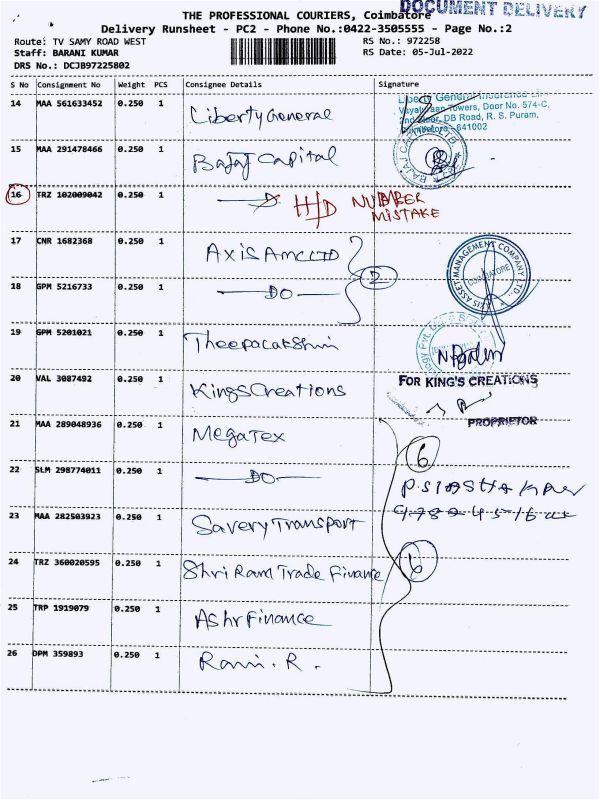 DOCUMENT DELIVERY
THE PROFESSIONAL COURIERS, Coimbatore
Delivery Runsheet - PC2 - Phone No.:0422-3505555 - Page No.:2
Route: TV SAMY ROAD WEST
RS No.: 972258
Staff: BARANI KUMAR
RS Date: 05-Jul-2022
DRS No.: DCJB97225802
S No Consignment No Weight PCS Consignee Details Signature
14 MAA 561633452 0.250 1 Liberty General
Liberty General Insurance
Towers, Door No. 574-C,
DB Road, R. S. Puram,
641002
15 MAA 291478466 0.250 1 Bajaj Capital
BAJAJ CAPITAL LTD
16 TRZ 102009042 0.250 1 H/D NUMBER
MISTAKE
17 CNR 1682368 0.250 1 Axis AMC LTD
2
AXIS ASSET MANAGEMENT COMPANY LTD.
COIMBATORE
18 GPM 5216733 0.250 1 DO
19 GPM 5201021 0.250 1 Theepa
20 VAL 3087492 0.250 1 Kings Creations
FOR KING'S CREATIONS
PROPRIETOR
21 MAA 289048936 0.250 1 MegaTex
6
22 SLM 298774011 0.250 1 DO
23 MAA 282503923 0.250 1 Savery Transport
24 TRZ 360020595 0.250 1 Shri Ram Trade Finance
6
25 TRP 1919079 0.250 1 Finance
26 DPM 359893 0.250 1 R.